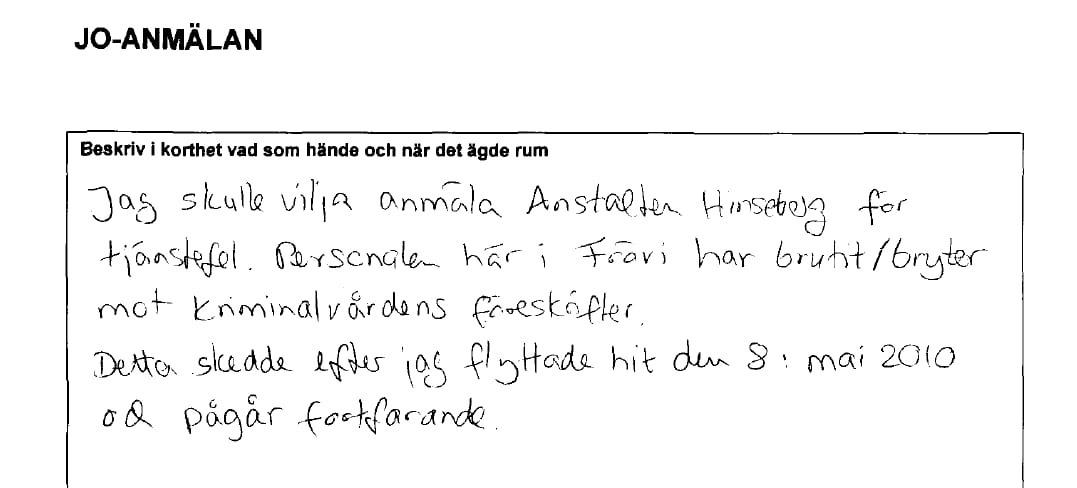 JO-ANMÄLAN
Beskriv i korthet vad som hände och när det ägde rum
Jag skulle vilja anmäla Anstalten Hinseberg för
tjänstefel. Personalen här i Frövi har brutit/bryter
mot Kriminalvårdens föreskrifter.
Detta skedde efter jag flyttade hit den 8: mai 2010
och pågår fortfarande.